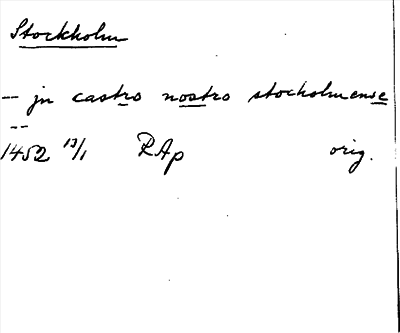 Stockholm
-- jn castro nostro stocholmense
--
1452 13/1 RAp orig.